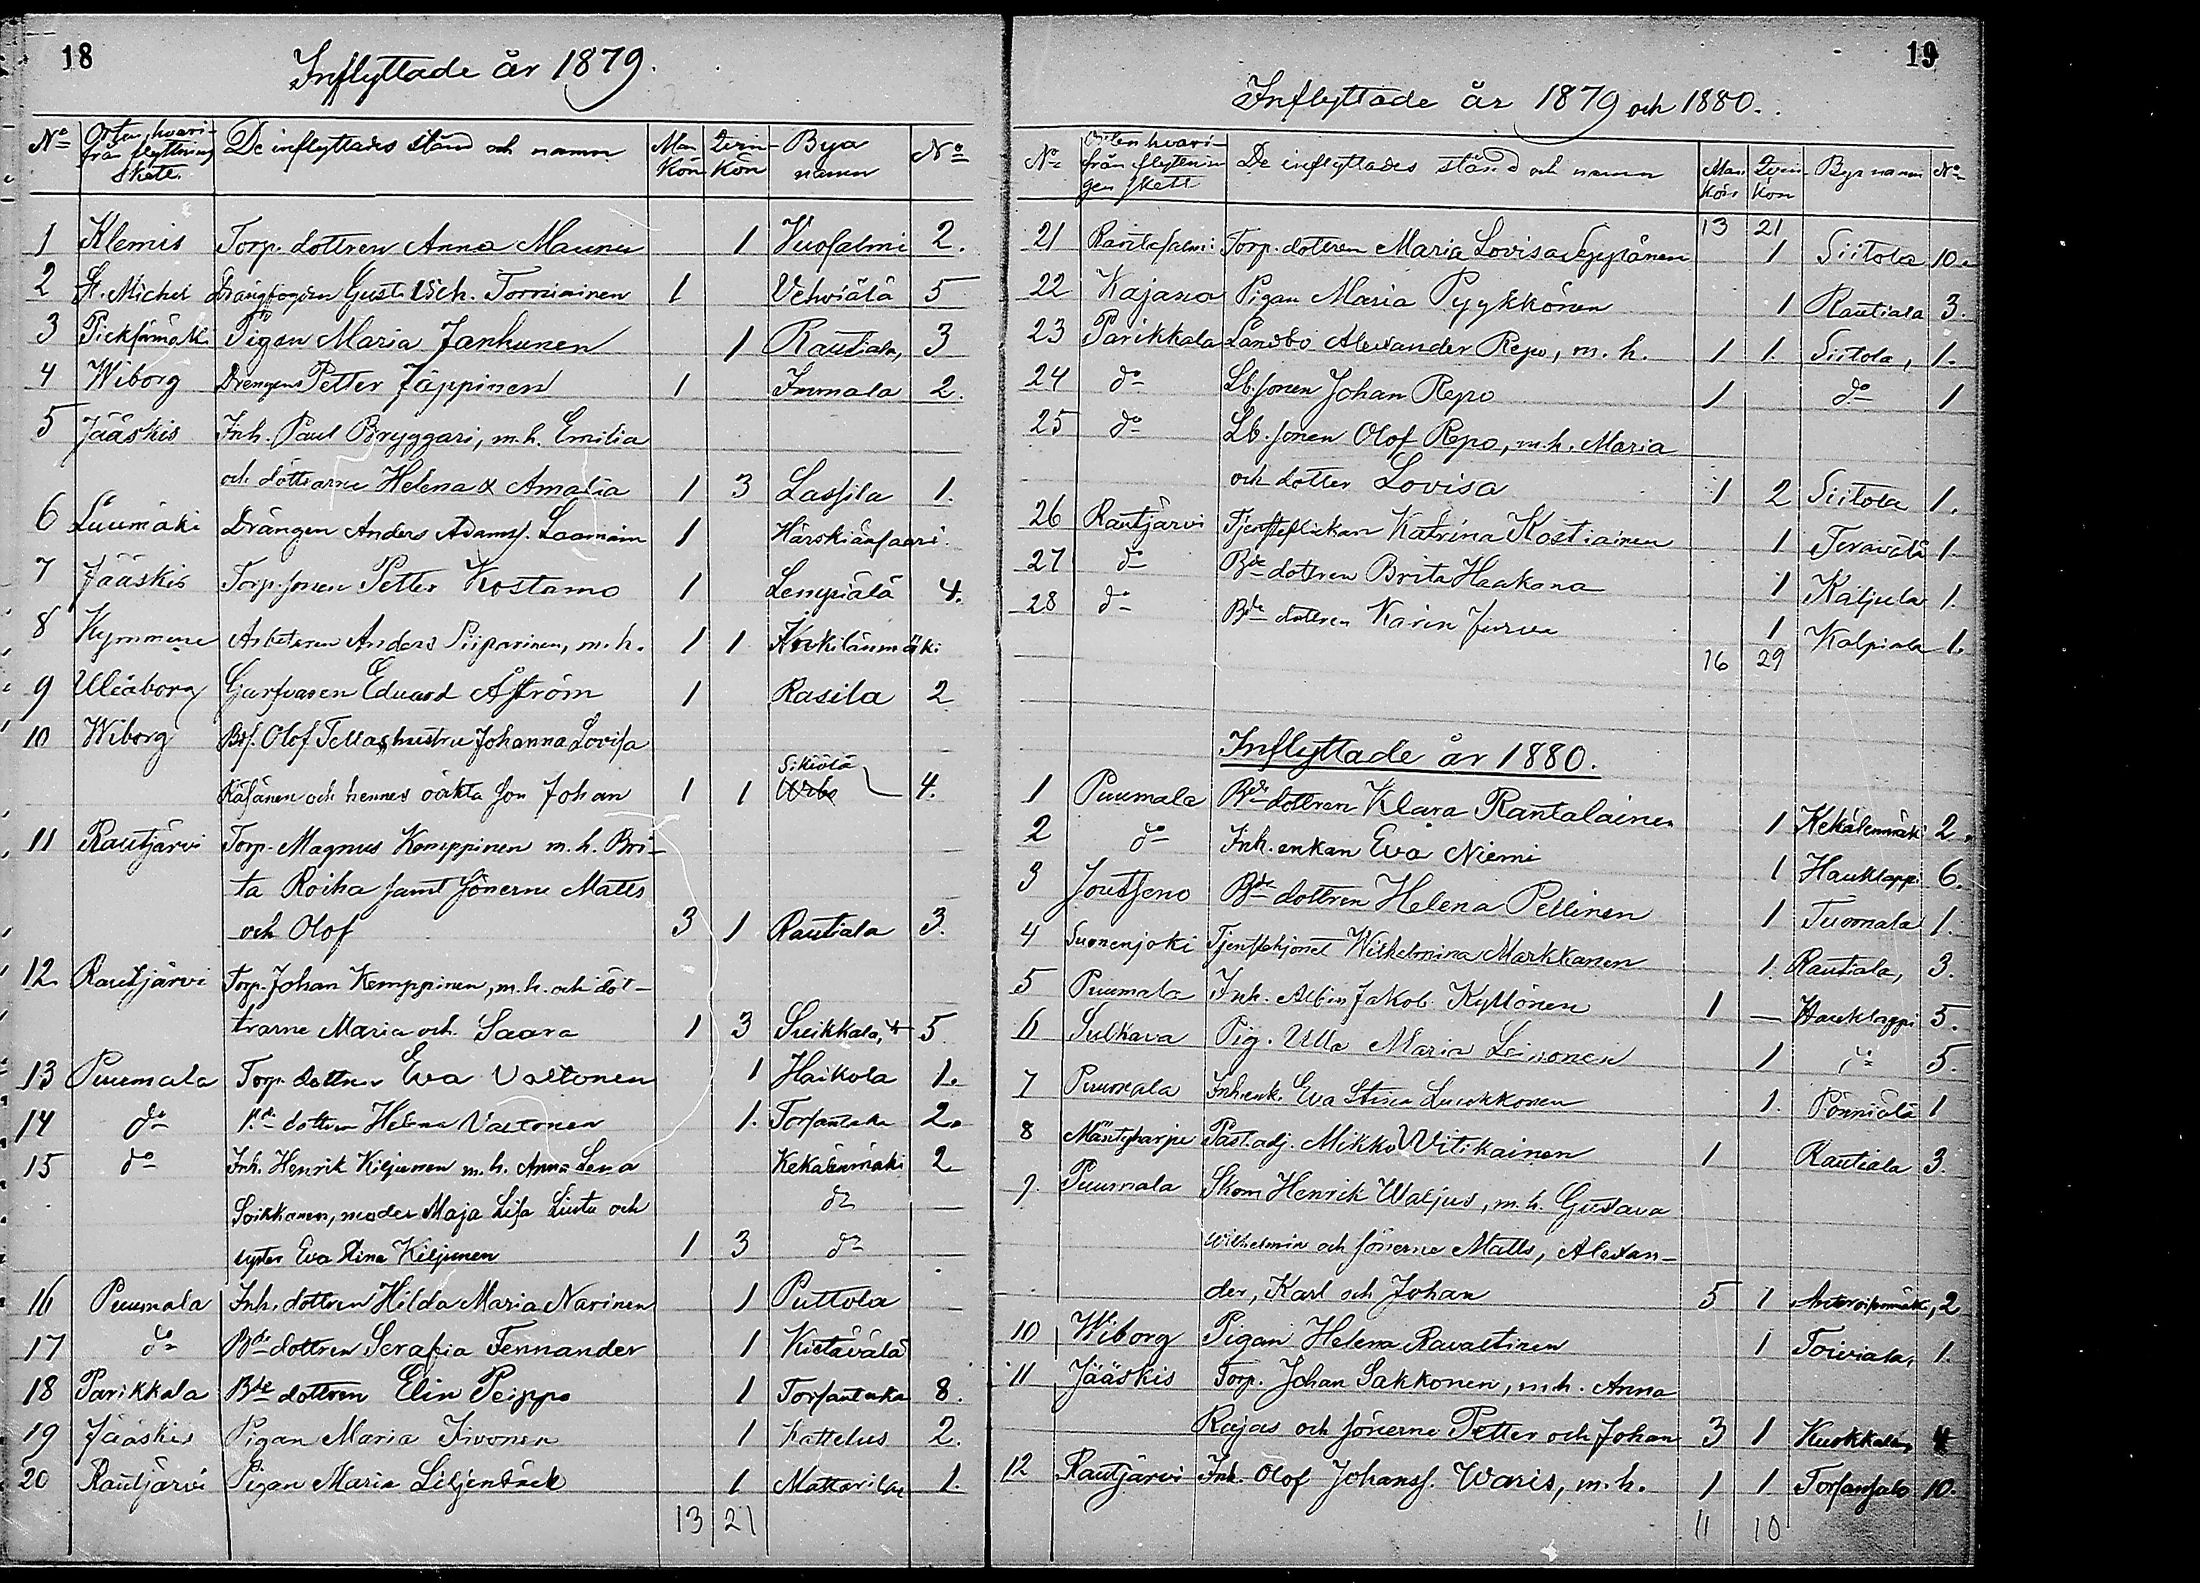 18
Inflyttade år 1879.
No Orten hvari- De inflyttades stånd och namn Man Qvin- Bya No
från flyttning kön kön namn
skett.
1 Klemis Torp. dottren Anna Maunu 1 Vuosalmi 2.
2 St. Michel Gust. Torniainen 1 Vehviälä 5
3 Pieksämäki Pigan Maria Janhunen 1 Rautiala, 3
4 Wiborg Drengen Petter Jäppinen 1 Immala 2.
5 Jääskis Inh. Paul Bryggari, m. h. Emilia
och döttrarne Helena & Amalia 1 3 Lassila 1.
6 Luumäki Drängen Anders Adamss. 1 Härskiänsaari.
7 Jääskis Torp. sonen Petter Kostamo 1 Lempiälä 4.
8 Kymmene Arbetaren Anders Piiparinen, m. h. 1 1
9 Uleåborg Garfvaren Eduard Åström 1 Rasila 2
10 Wiborg Bds. Olof Tellas hustru Johanna Lovisa
Käsänen och hennes oäkta son Johan 1 1 Sikiölä 4.
11 Rautjärvi Torp. Magnus Kemppinen m. h. Bri-
ta Roiha samt sönerne Matts
och Olof 3 1 Rautiala 3.
12. Rautjärvi Torp. Johan Kemppinen, m. h. och döt-
trarne Maria och Saara 1 3 Sueikkala, 5
13 Puumala Torp. dottren Eva Valtonen 1 Haikola 1.
14 do dottren Helena Valtonen 1. Torsantaka 2.
15 do Inh. Henrik Kiljunen m. h. Anna Lena Kekäleenmäki 2
Soikkanen, moder Maja Lisa Liuta och do
syster Eva Stina Kiljunen 1 3 do
16 Puumala Inh. dottren Hilda Maria Narinen 1 Puttola
17 do Bde dottren Serafia Fennander 1 Kietävälä
18 Parikkala Bde dottren Elin Peippo 1 Torsantaka 8.
19 Jääskis Pigan Maria Sivonen 1 Kattelus 2.
20 Rautjärvi Pigan Maria Liljenbäck 1 Mattarila 1.
13 21
19
Inflyttade år 1879 och 1880.
No Orten hvari- De inflyttades stånd och namn Man Qvin- Bya namn No
från flyttnin- kön kön
gen skett
13 21
21 Rantasalmi Torp. dottren Maria Lovisa Seppänen 1 Siitola 10.
22 Kajana Pigan Maria Pyykkönen 1 Rautiala 3.
23 Parikkala Landbo Alexander Repo, m. h. 1 1 Siitola, 1.
24 do Lb. sonen Johan Repo 1 do 1
25 do Lb. sonen Olof Repo, m. h. Maria
och dotter Lovisa 1 2 Siitola 1.
26 Rautjärvi Tjensteflickan Katrina Kostiainen 1 Terävälä 1.
27 do Bde dottren Brita Haakana 1 Kaljula 1.
28 do Bde dottren Karin Jurva 1 Kalpiala 1.
16 29
Inflyttade år 1880.
1 Puumala Bde dottren Klara Rantalainen 1 Kekäleenmäki 2.
2 do Inh. enkan Eva Niemi 1 Hauklappi 6.
3 Joutseno Bde dottren Helena Pellinen 1 Tuomala 1.
4 Suonenjoki Tjenstehjonet Wilhelmina Markkanen 1. Rautiala, 3.
5 Puumala Inh. Albin Jakob Kyllönen 1 — Hauklappi 5.
6 Sulkava Pig. Ulla Maria Leinonen 1 do 5.
7 Puumala Inh. enk. Eva Stina Luukkonen 1. Pönniälä 1
8 Mäntyharju Past. adj. Mikko Witikainen 1 Rautiala 3.
9. Puumala Skom Henrik Waljus, m. h. Gustava
Wilhelmin och sönerne Matts, Alexan-
der, Karl och Johan 5 1 2
10 Wiborg Pigan Helena Ravattinen 1 Toiviala, 1.
11 Jääskis Torp. Johan Sakkonen, m. h. Anna
Rajas och sönerne Petter och Johan 3 1 Kuokkala, 4
12 Rautjärvi Inh. Olof Johanss. Waris, m. h. 1 1 Torsansalo 10.
11 10